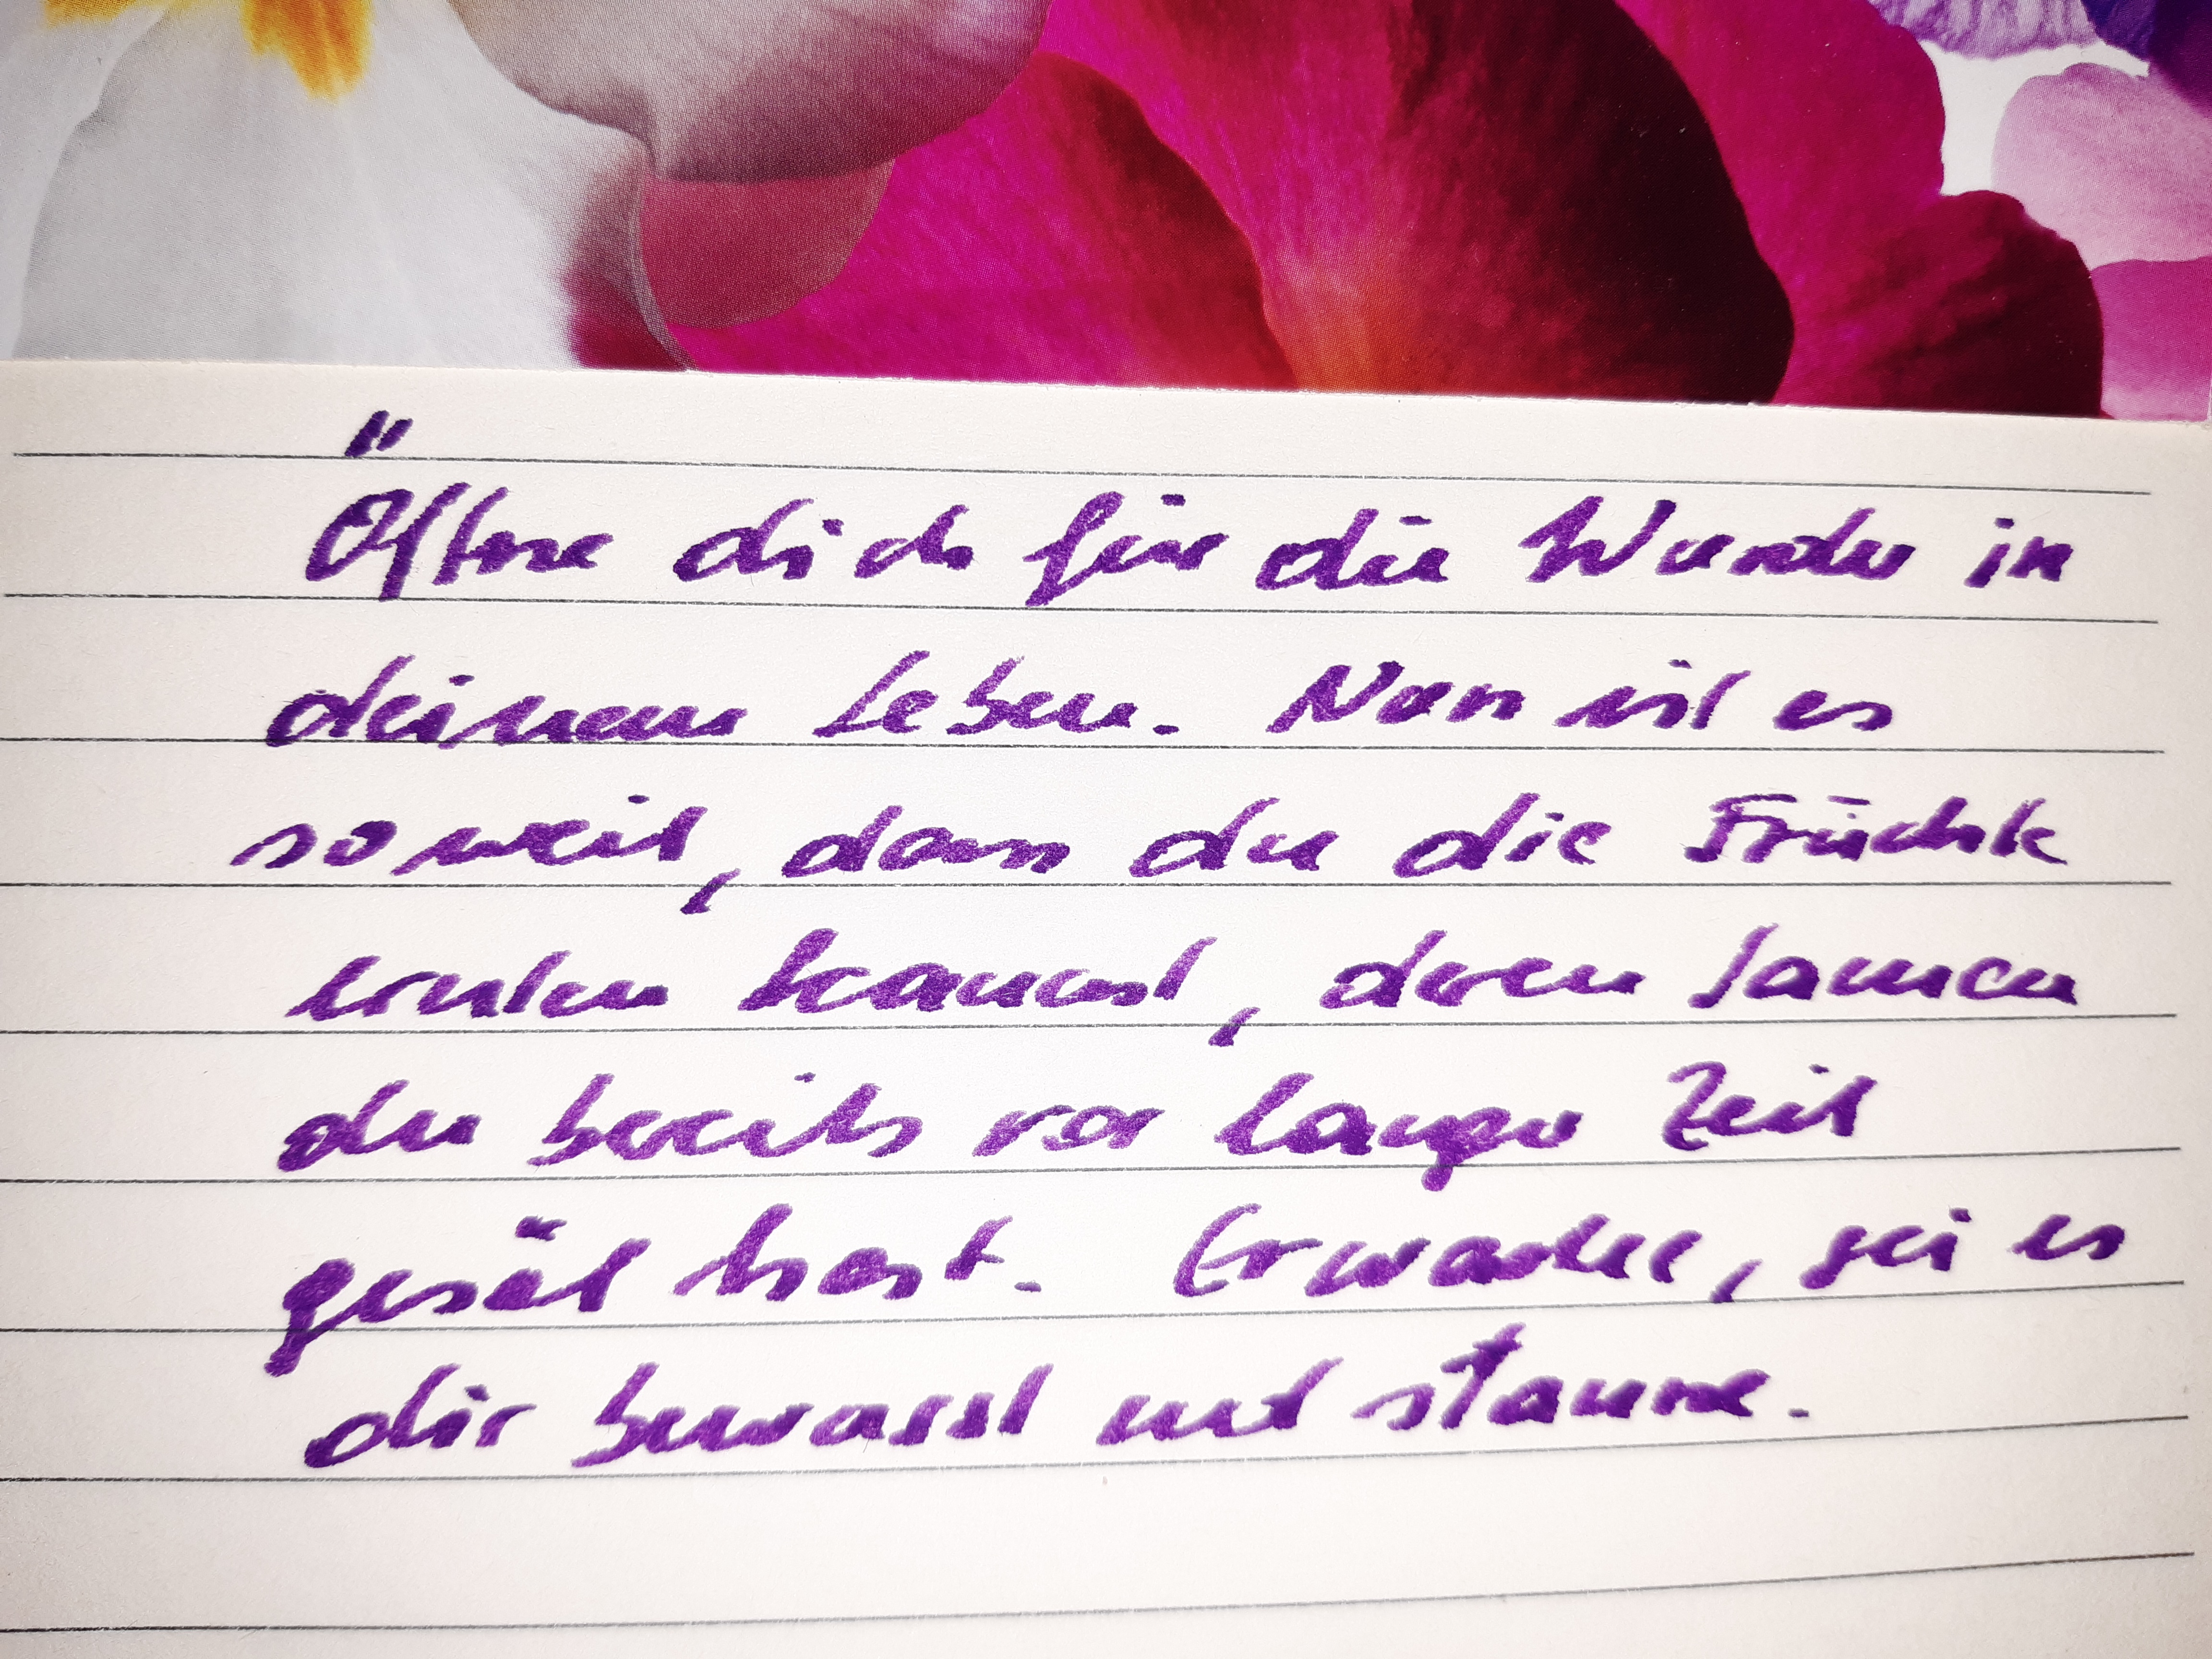 Öffne dich für die Wunder in
deinem Leben. Nun ist es
soweit, dass du die Früchte
ernten kannst, deren Samen
du bereits vor langer Zeit
gesät hast. Erwache, sei es
dir bewusst und staune.